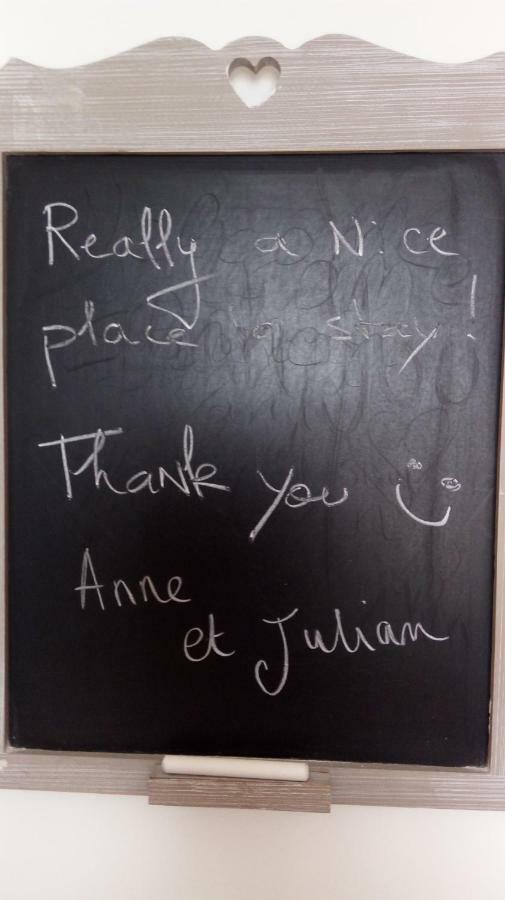 Really a Nice
place to stay!
Thank you
Anne
et Julian